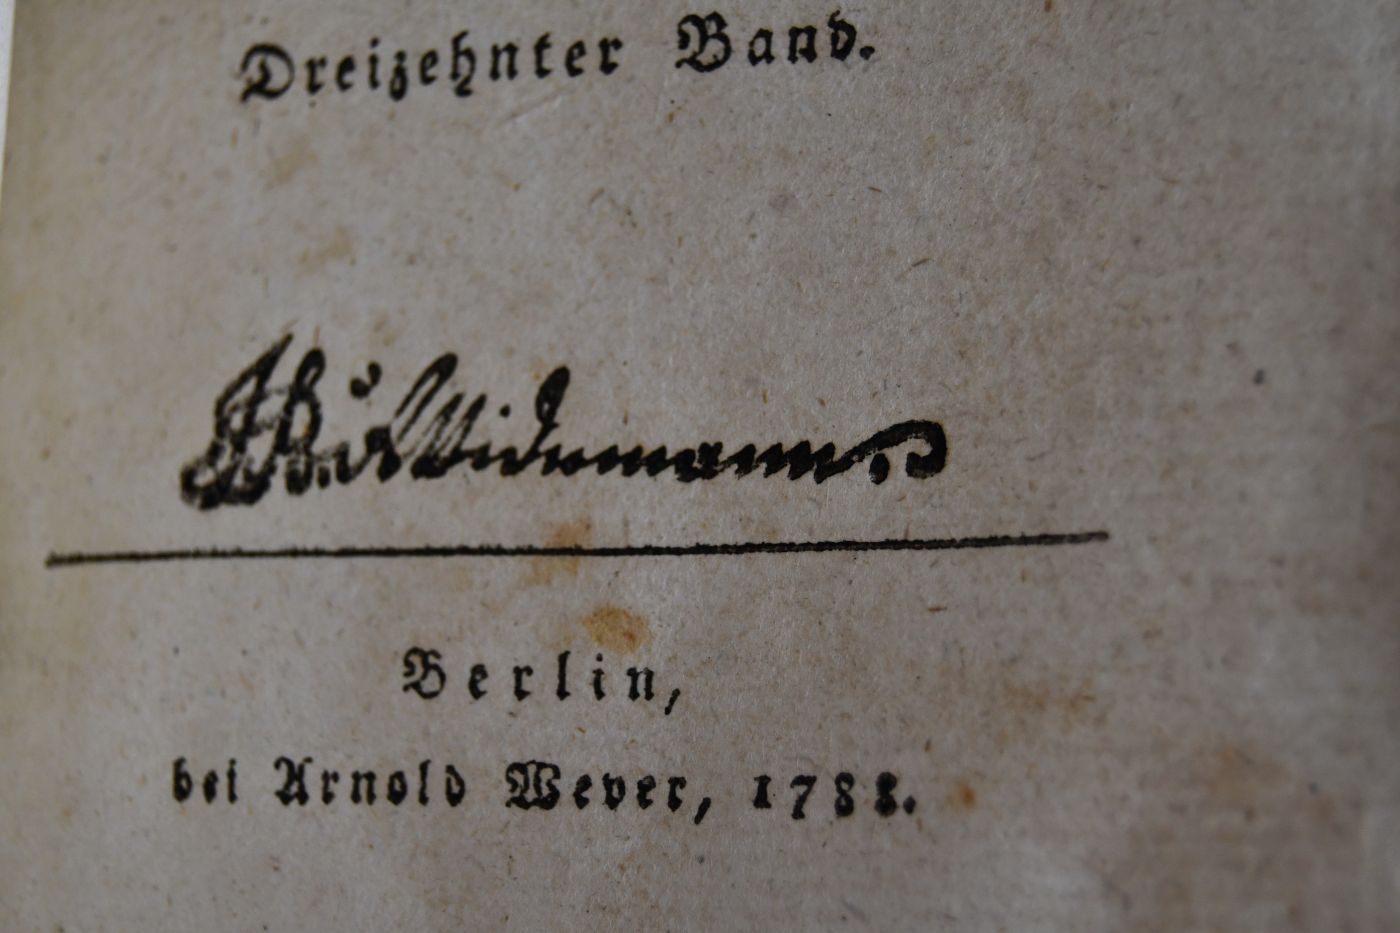 Dreizehnter Band.
Widemann
Berlin,
bei Arnold Wever, 1788.